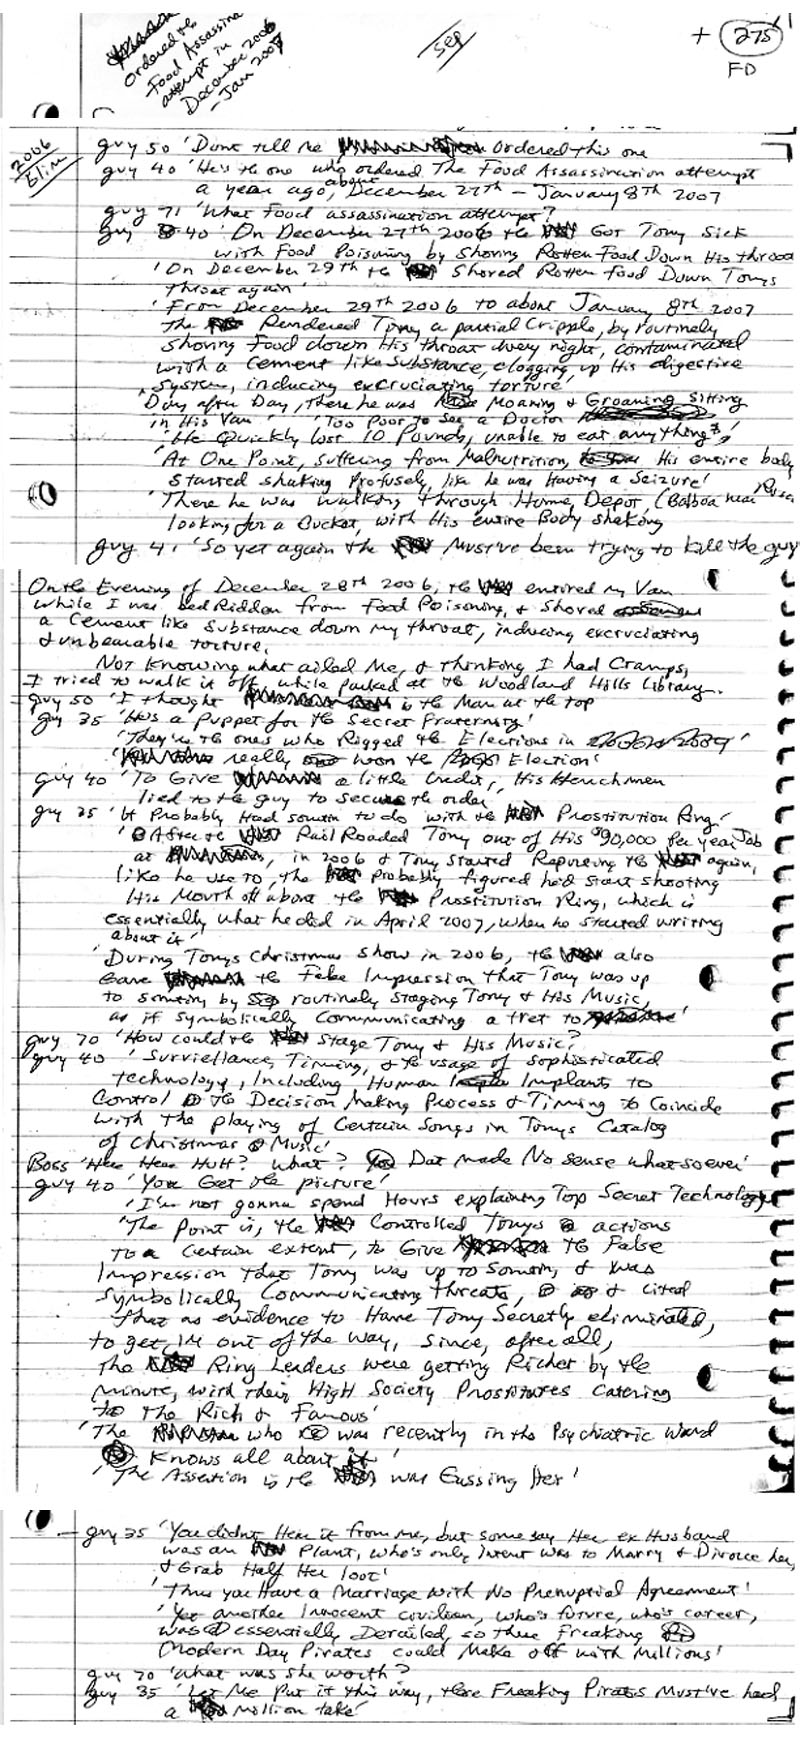 Ordered the
Food Assassina
attempt in
December 2006
- Jan 2007
Sep
+ 275
FD
2006
Elim
guy 50 'Dont tell me Ordered this one
guy 40 'He's the one who ordered The Food Assassination attempt
a year ago, about December 27th - January 8th 2007
guy 71 'What Food assassination attempt?
guy 40 'On December 27th 2006 the Got Tony Sick
with Food Poisoning by Shoving Rotten Food Down His throat
'On December 29th the Shoved Rotten food Down Tonys
throat again'
'From December 29th 2006 to about January 8th 2007
the Rendered Tony a partial Cripple, by routinely
shoving Food down His throat every night, contaminated
with a Cement like Substance, clogging up His digestive
System, inducing excruciating torture'
'Day after Day, There he was Moaning & Groaning Sitting
in His Van' 'Too Poor to See a Doctor
'He Quickly lost 10 Pounds, unable to eat anything'
'At One Point, suffering from Malnutrition, His entire body
Started shaking Profusely, like he was Having a Seizure'
'There he was walking through Home Depot, (Balboa near
looking for a Bucket, with His entire Body shaking
guy 41 'So yet again the Must've been trying to kill the guy
On the Evening of December 28th 2006, the entired my Van
while I was bed Ridden from Food Poisoning, & Shoved
a Cement like Substance down my throat, inducing excruciating
& unbearable torture.
Not Knowing what ailed Me, & thinking I had Cramps,
I tried to walk it off, while parked at the Woodland Hills Library.
guy 50 'I thought is the Man at the top
guy 35 'He's a Puppet for the Secret Fraternity'
'They're the ones who Rigged the Elections in
really won the Election'
guy 40 'To Give a little Credit, His Henchmen
lied to the guy to secure the order'
guy 35 'It Probably Had somtin to do with the Prostitution Ring'
'After the Rail Roaded Tony out of His $90,000 per year Job
at , in 2006 & Tony started Reporting the again,
like he use to, the Probably figured he'd start shooting
His Mouth off about the Prostitution Ring, which is
essentially what he did in April 2007, when he started writing
about it'
'During Tonys Christmas show in 2006, the also
Gave the False Impression that Tony was up
to somtin by routinely staging Tony & His Music,
as if symbolically communicating a tret to '
guy 70 'How could the Stage Tony & His Music?
guy 40 'Surviellance, Timing, & the usage of sophisticated
technology, Including Human Implants to
Control the Decision Making Process & Timing to Coincide
with the playing of Certain Songs in Tonys Catalog
of Christmas Music'
Boss 'Here Here Huh? What? Dat made No sense whatsoever'
guy 40 'You Get the picture'
'I'm not gonna spend Hours explaining Top Secret Technology
'The Point is, the Controlled Tonys actions
to a Certain extent, to Give the False
Impression that Tony was up to Somtin, & was
symbolically Communicating threats, & cited
that as evidence to Have Tony Secretly eliminated,
to get IM out of the way, Since, after all,
the Ring Leaders were getting Richer by the
minute, with their High Society Prostitutes Catering
to the Rich & Famous'
'The who was recently in the Psychiatric Ward
Knows all about it'
'The Assertion is the was Gassing Her'
guy 35 'You didnt Hear it from me, but some say Her ex Husband
was an Plant, who's only intent was to Marry & Divorce her,
& Grab Half Her loot'
'Thus you Have a Marriage with No Prenuptial Agreement'
'Yet another Innocent civilian, who's future, who's career,
was essentially Derailed, so these Freaking
Modern Day Pirates could Make off with Millions'
guy 70 'What was she worth?
guy 35 'Let Me Put it this way, these Freaking Pirates Must've had
a Million take'